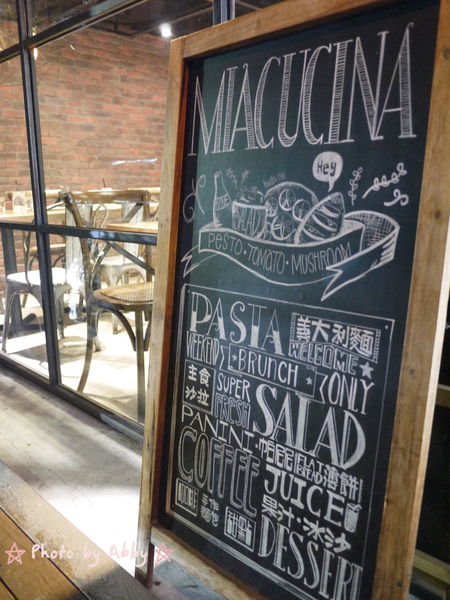 MIACUCINA
Hey
PESTO · TOMATO · MUSHROOM
PASTA 義大利麵
WELCOME
WEEKEND BRUNCH ONLY
主食沙拉
SUPER FRESH
SALAD
PANINI 帕尼尼
FLAT BREAD 薄餅
COFFEE
JUICE
果汁·冰沙
手作麵包
甜點
DESSERT
☆ Photo by Abby ☆